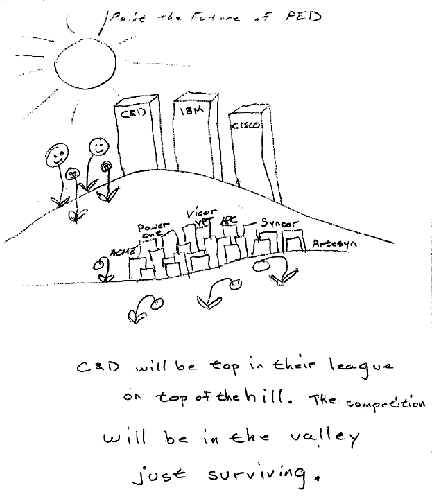 Paint the Future of PED
C&D
IBM
CISCO
Power
one
Vicor
VPT
APC
Syncor
ACME
Artesyn
C&D will be top in their league
on top of the hill. The competition
will be in the valley
just surviving.